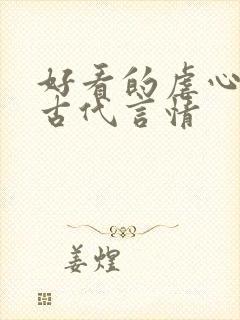 好看的虐心
古代言情
姜煌